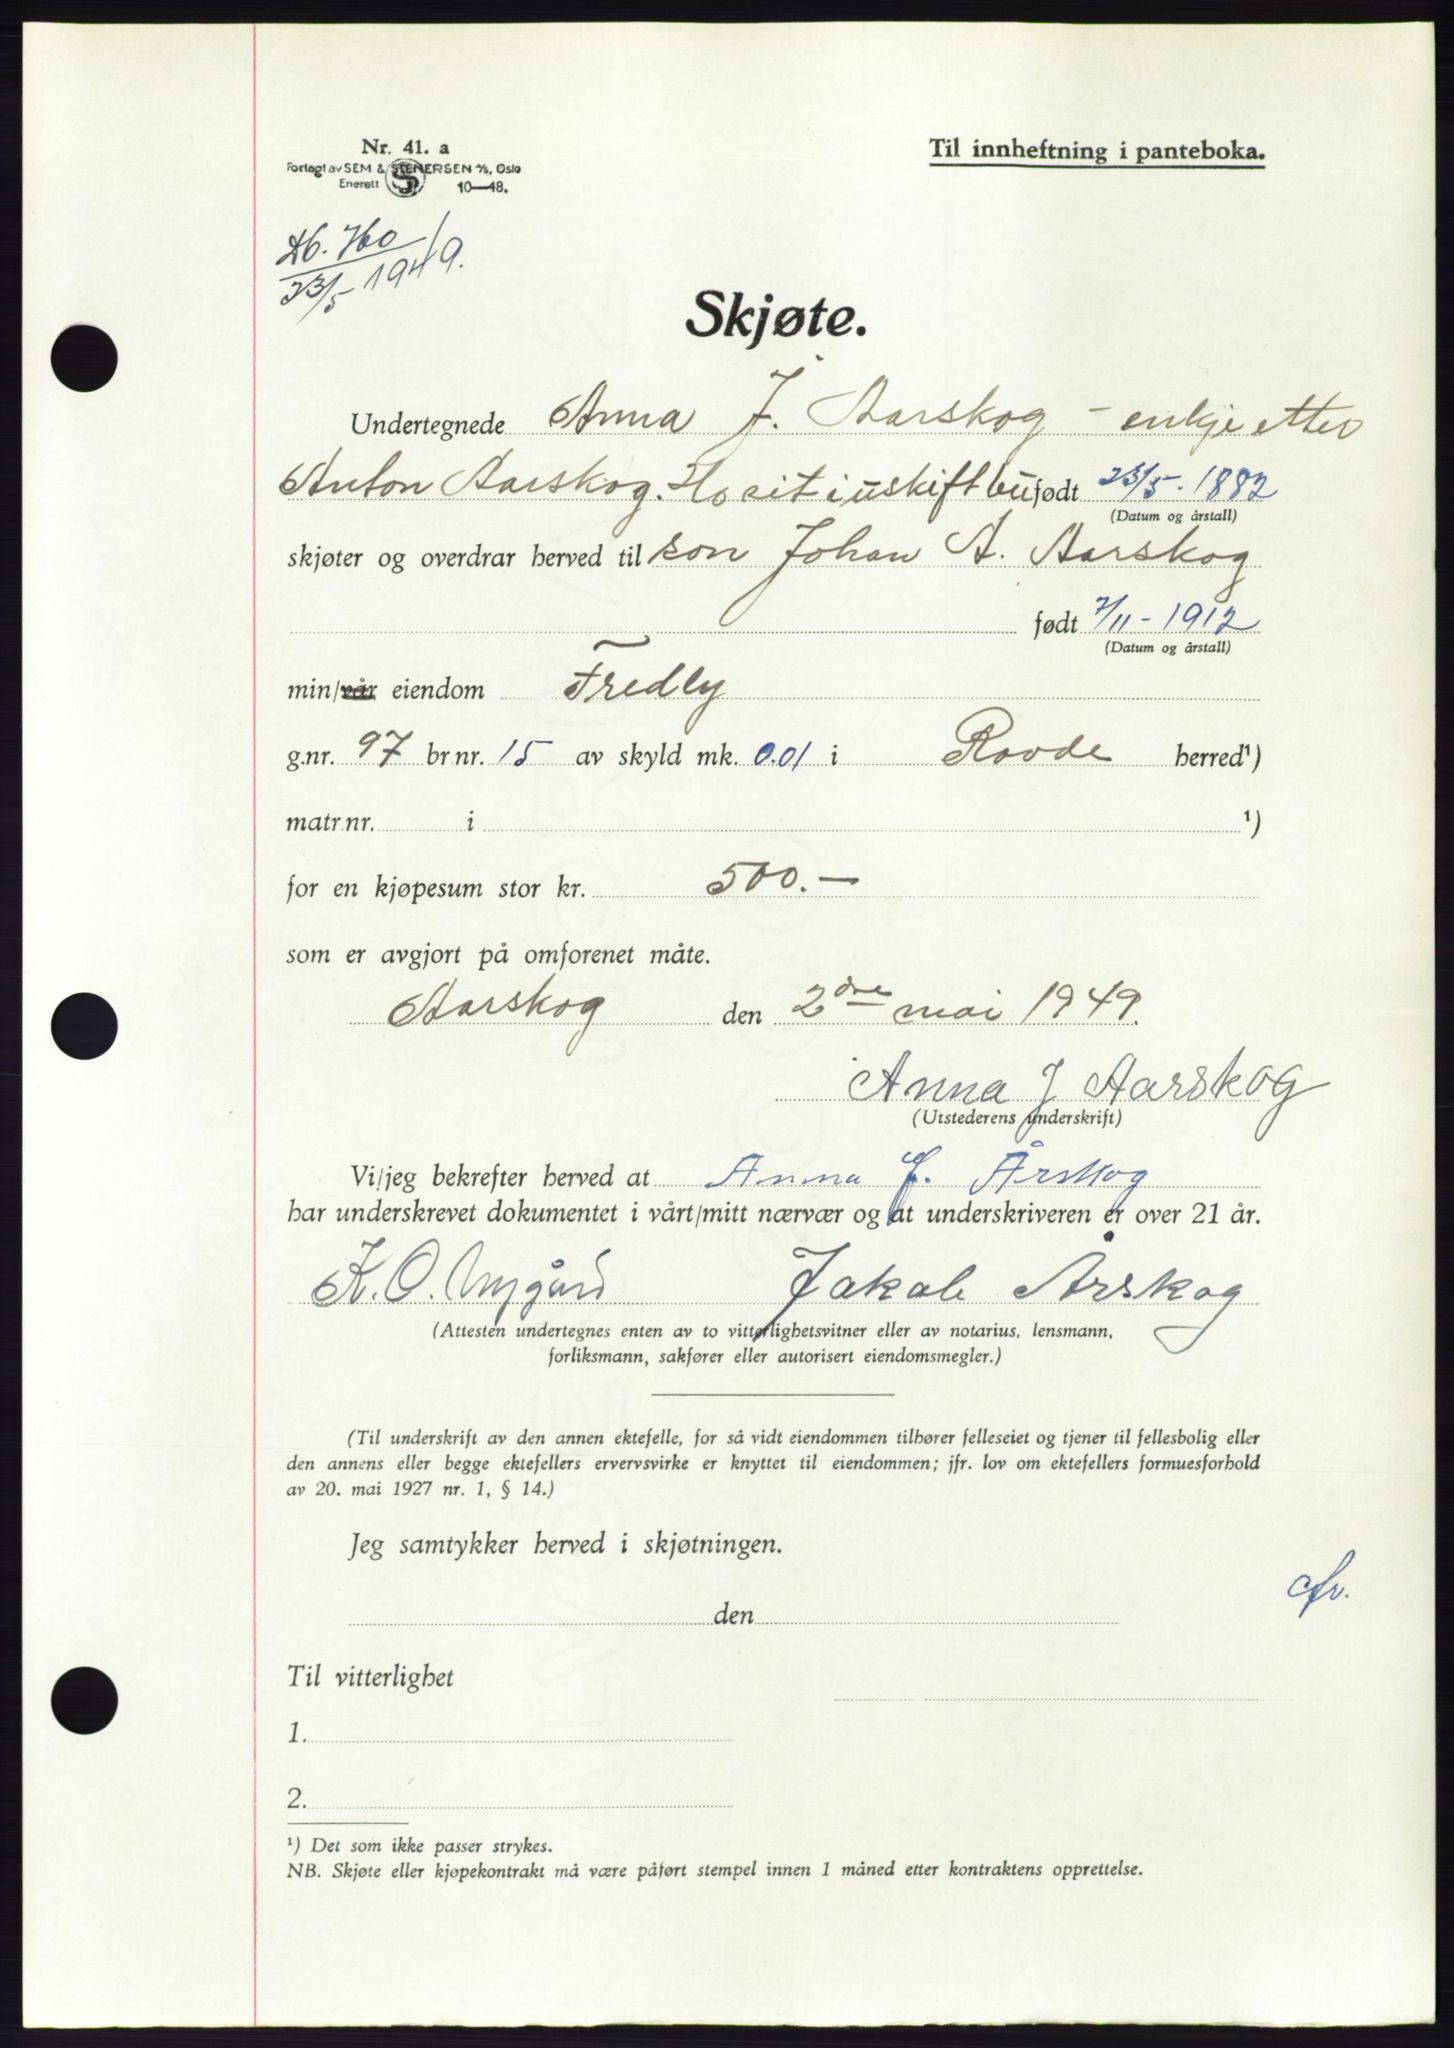 Nr. 41. a
Til innheftning i panteboka.
Forlagt av SEM & STENERSEN A/S, Oslo
Enerett S 10—48.
Db. 760/1949.
23/5
Skjøte.
Undertegnede Anna J. Aarskog - enkje etter
Anton Aarskog. Ho sit i uskift bu født 23/5. 1882
(Datum og årstall)
skjøter og overdrar herved til son Johan A. Aarskog
født 7/11 - 1912
(Datum og årstall)
min/vår eiendom Fredly
g.nr. 97 br.nr. 15 av skyld mk. 0.01 i Rovde herred¹)
matr.nr. i ¹)
for en kjøpesum stor kr. 500.—
som er avgjort på omforenet måte.
Aarskog den 2dre mai 1949.
Anna J Aarskog
(Utstederens underskrift)
Vi/jeg bekrefter herved at Anna J. Årskog
har underskrevet dokumentet i vårt/mitt nærvær og at underskriveren er over 21 år.
K. O. Nygård Jakob Årskog
(Attesten undertegnes enten av to vitterlighetsvitner eller av notarius, lensmann,
forliksmann, sakfører eller autorisert eiendomsmegler.)
(Til underskrift av den annen ektefelle, for så vidt eiendommen tilhører felleseiet og tjener til fellesbolig eller
den annens eller begge ektefellers ervervsvirke er knyttet til eiendommen; jfr. lov om ektefellers formuesforhold
av 20. mai 1927 nr. 1, § 14.)
Jeg samtykker herved i skjøtningen.
den
Til vitterlighet
1.
2.
¹) Det som ikke passer strykes.
NB. Skjøte eller kjøpekontrakt må være påført stempel innen 1 måned etter kontraktens opprettelse.